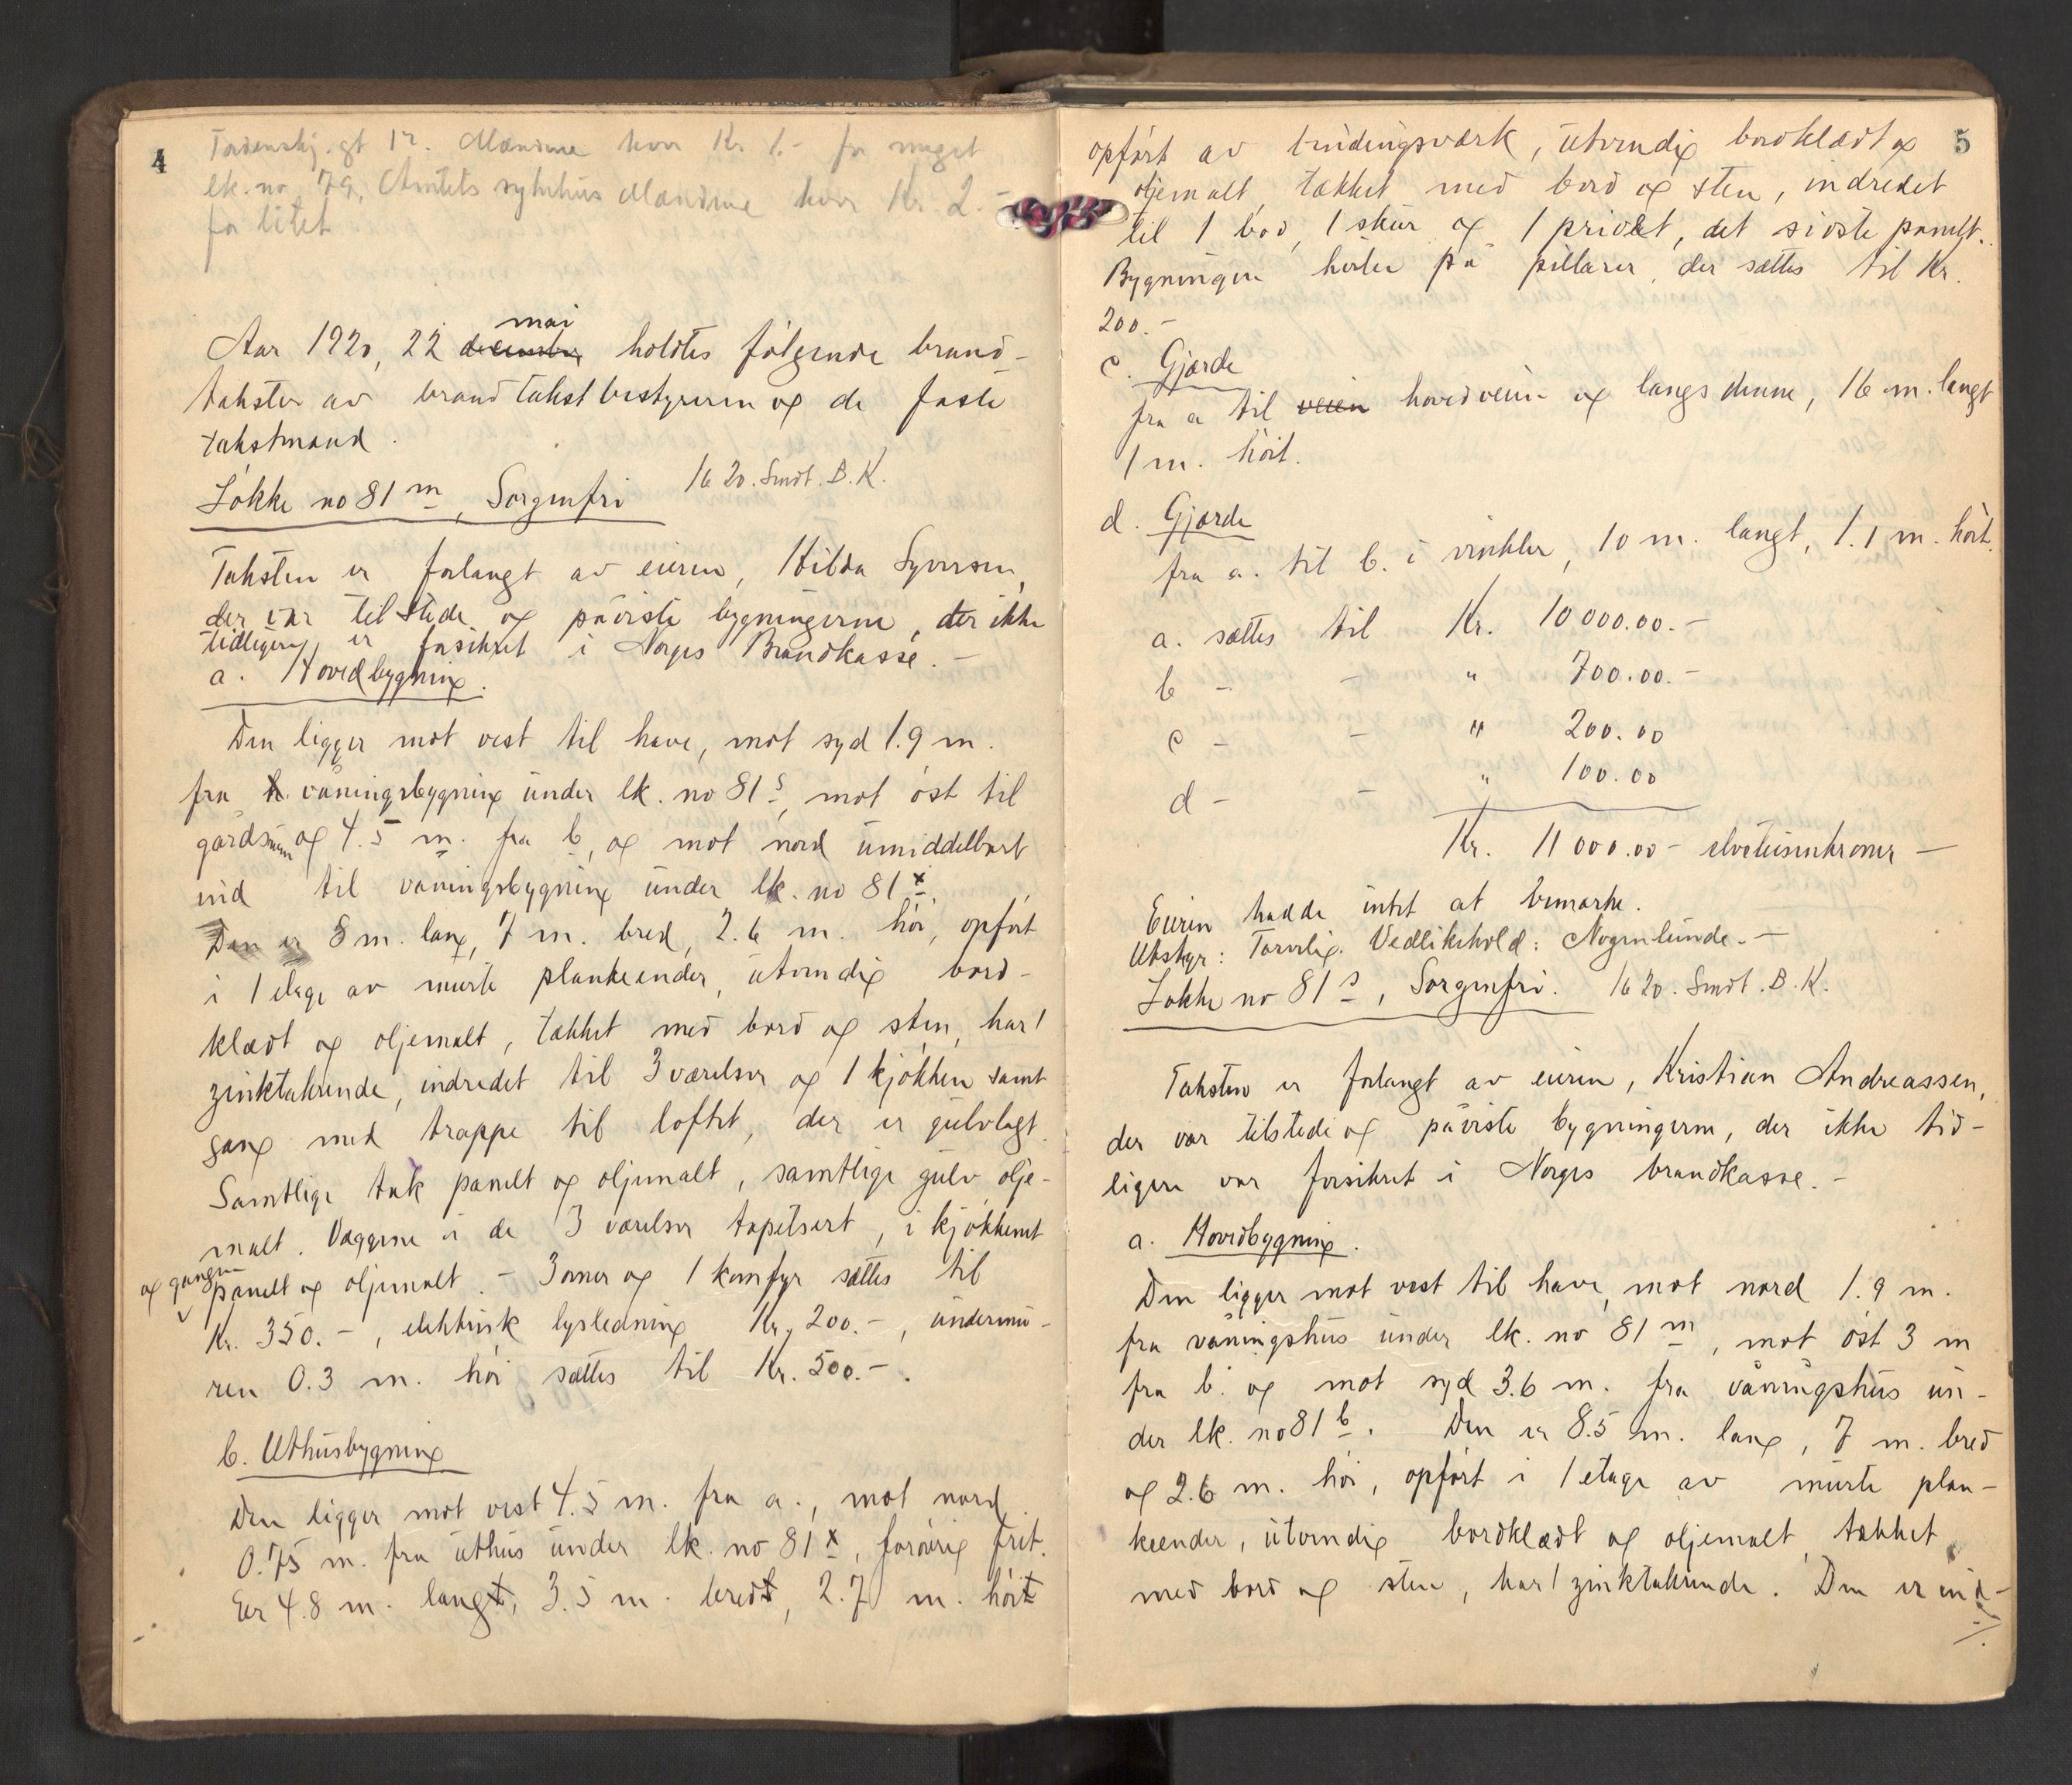 4
Tordenskj. gt 12. Mændene hver Kr. 1.- for meget
lk. no 79, Amtets sykehus Mændene hver Kr. 2.-
for litet
Aar 1920, 22 december mai holdtes følgende brand-
takster av brandtakstbestyreren og de faste
takstmænd.
Løkke no 81 m, Sorgenfri 16 20. Smdt. B. K.
Taksten er forlangt av eieren, Hilda Syversen,
der var tilstede og påviste bygningerne, der ikke
tidligere er forsikret i Norges Brandkasse. -
a. Hovedbygning.
Den ligger mot vest til have, mot syd 1.9 m.
fra våningsbygning under lk. no 81 s, mot øst til
gårdsrum og 4.5 m. fra b, og mot nord umiddelbart
ind til våningsbygning under lk. no 81 x.
Den er 8 m. lang, 7 m. bred, 2.6 m. høi, opført
i 1 etage av murte plankeender, utvendig bord-
klædt og oljemalt, tækket med bord og sten, har 1
zinktakrende, indredet til 3 værelser og 1 kjøkken samt
gang med trappe til loftet, der er gulvlagt.
Samtlige tak panelt og oljemalt, samtlige gulv olje-
malt. Væggene i de 3 værelser tapetsert, i kjøkkenet
og gangen panelt og oljemalt. - 3 ovner og 1 komfyr sættes til
Kr. 350.-, elektrisk lysledning Kr. 200.-, undermu-
ren 0.3 m. høi sættes til Kr. 500.-.
b. Uthusbygning
Den ligger mot vest 4.5 m. fra a., mot nord
0.75 m. fra uthus under lk. no 81 x, forøvrig frit.
Er 4.8 m. langt, 3.5 m. bredt, 2.7 m. høit
5
opført av bindingsværk, utvendig bordklædt og
oljemalt, tækket med bord og sten, indredet
til 1 bod, 1 skur og 1 privet, det sidste panelt.
Bygningen hviler på pillarer, der sættes til Kr.
200.-
c. Gjærde
fra a til veien hovedveien og langs denne, 16 m. langt
1 m. høit.
d. Gjærde
fra a. til b. i vinkler, 10 m. langt, 1.1 m. høit.
a. sættes til Kr. 10 000.00.-
b - - " 700.00.-
c - - " 200.00
d - - " 100.00
Kr. 11 000.00 - elvetusenkroner -
Eieren hadde intet at bemærke.
Utstyr: Tarvelig. Vedlikehold: Nogenlunde. -
Løkke no 81 s, Sorgenfri. 16 20. Smdt. B. K.
Taksten er forlangt av eieren, Kristian Andreassen,
der var tilstede og påviste bygningerne, der ikke tid-
ligere var forsikret i Norges brandkasse. -
a. Hovedbygning.
Den ligger mot vest til have, mot nord 1.9 m.
fra våningshus under lk. no 81 m, mot øst 3 m
fra b. og mot syd 3.6 m. fra våningshus un-
der lk. no 81 b. Den er 8.5 m. lang, 7 m. bred
og 2.6 m. høi, opført i 1 etage av murte plan-
keender, utvendig bordklædt og oljemalt, tækket
med bord og sten, har 1 zinktakrende. Den er ind-
./.